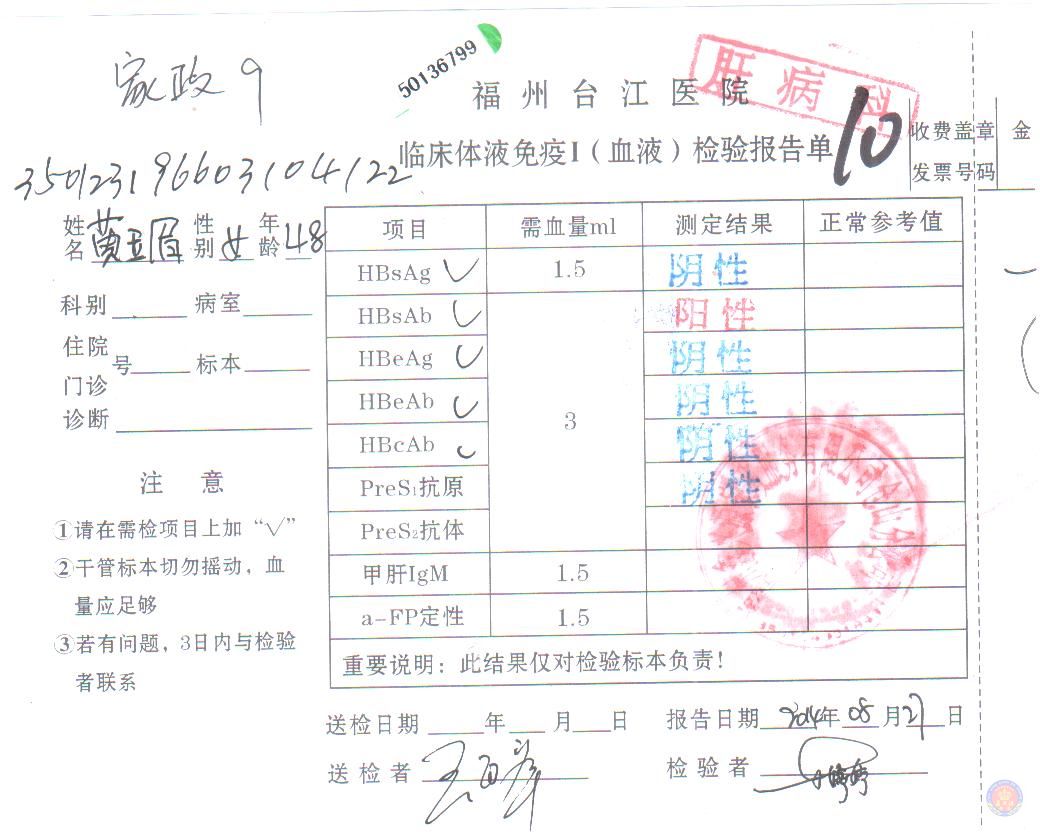 家政 9
50136799
福州台江医院
肝病科
10
350123196603104122
临床体液免疫I（血液）检验报告单
收费盖章
金
发票号码
姓名 性别 女 年龄 48
科别 病室
住院
门诊
号 标本
诊断
项目 需血量ml 测定结果 正常参考值
HBsAg √ 1.5 阴性
HBsAb √ 3 阳性
HBeAg √ 阴性
HBeAb √ 阴性
HBcAb √ 阴性
PreS1抗原 阴性
PreS2抗体
甲肝IgM 1.5
a-FP定性 1.5
重要说明：此结果仅对检验标本负责！
注 意
①请在需检项目上加“√”
②干管标本切勿摇动，血
量应足够
③若有问题，3日内与检验
者联系
送检日期 年 月 日
报告日期 2014年 08月 27日
送检者
检验者